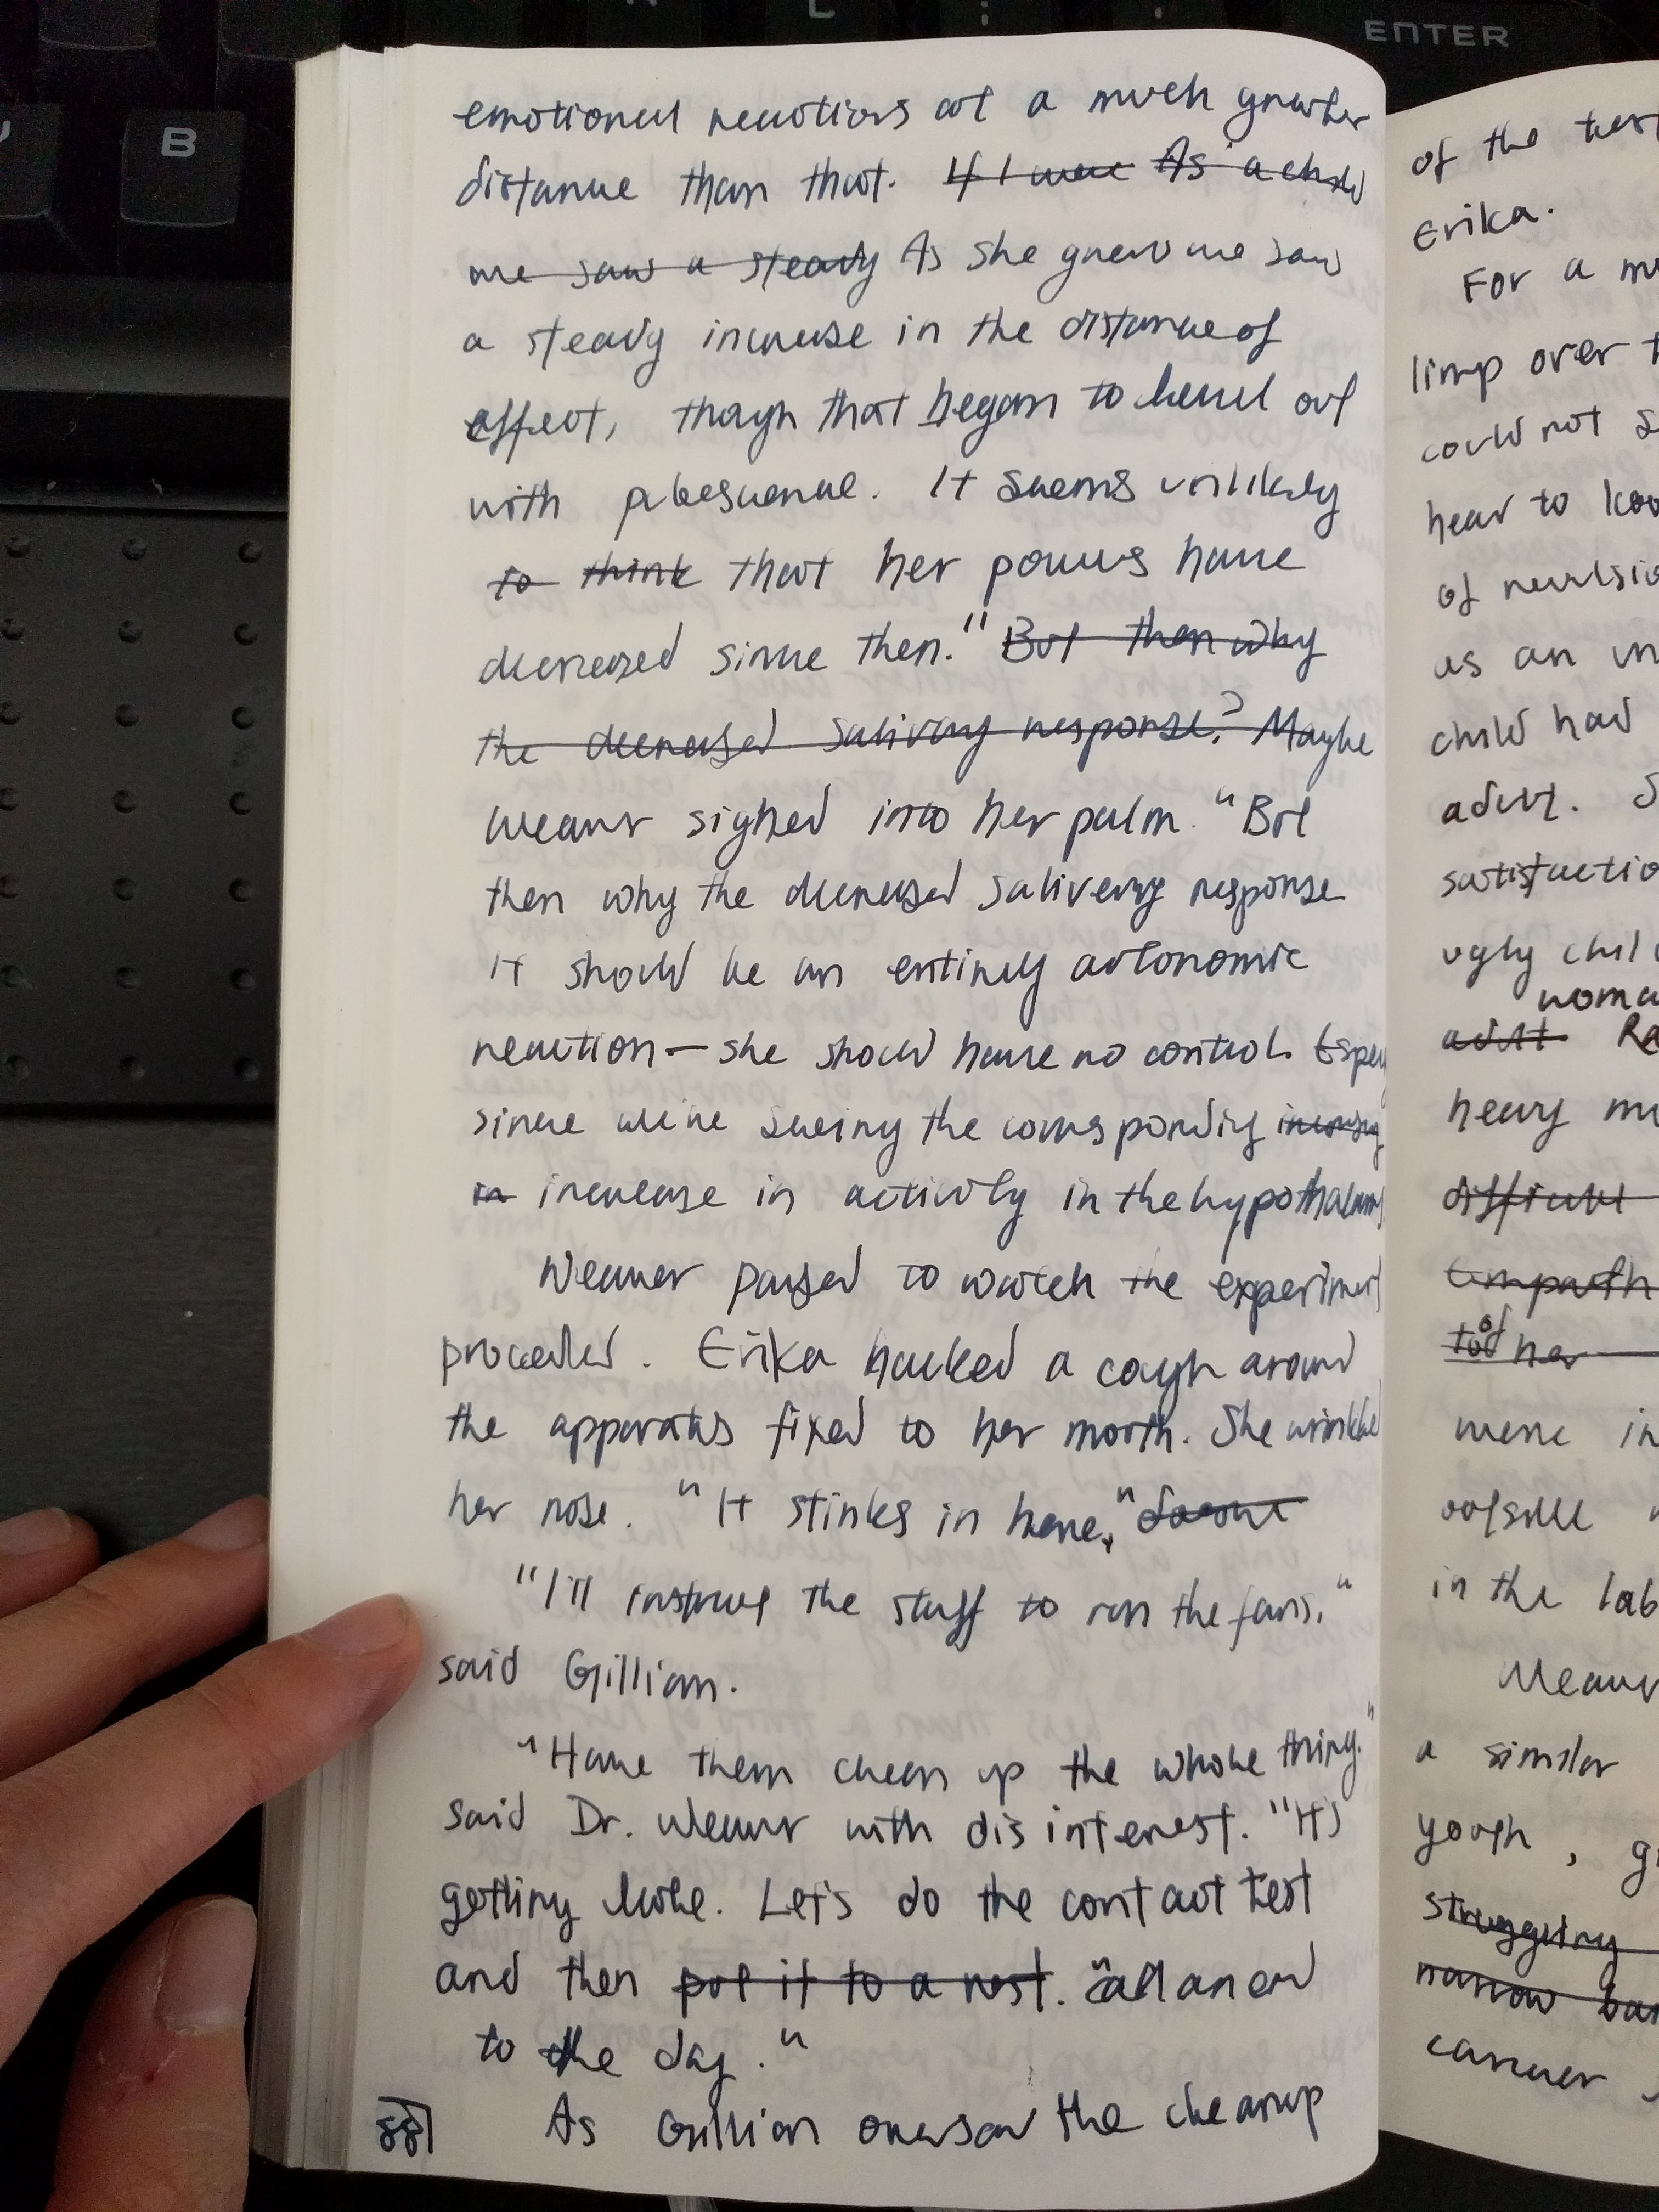 ENTER
B
emotional reactions at a much greater
distance than that. If I were As a child
we saw a steady As she grew we saw
a steady increase in the distance of
effect, though that began to level out
with pubescence. It seems unlikely
to think that her powers have
decreased since then." But then why
the decreased salivary response? Maybe
Weaver sighed into her palm. "But
then why the decreased salivary response
it should be an entirely autonomic
reaction — she should have no control. Espec
since we're seeing the corresponding
in increase in activity in the hypothalamus
Weaver paused to watch the experiment
proceeded. Erika hacked a cough around
the apparatus fixed to her mouth. She wrinkled
her nose. "It stinks in here,"
"I'll instruct the staff to run the fans,"
said Gillian.
"Have them clean up the whole thing."
said Dr. Weaver with disinterest. "It's
getting late. Let's do the contact test
and then put it to a rest. "call an end
to the day."
As Gillian oversaw the cleanup
88
of the test
Erika.
For a
limp over
could not
hear to
of
as an
child had
adult.
ugly
woma
adult Ra
heavy
difficult
of
to her
were in
outside
in the lab
Weaver
a similar
youth, g
struggling
narrow
career